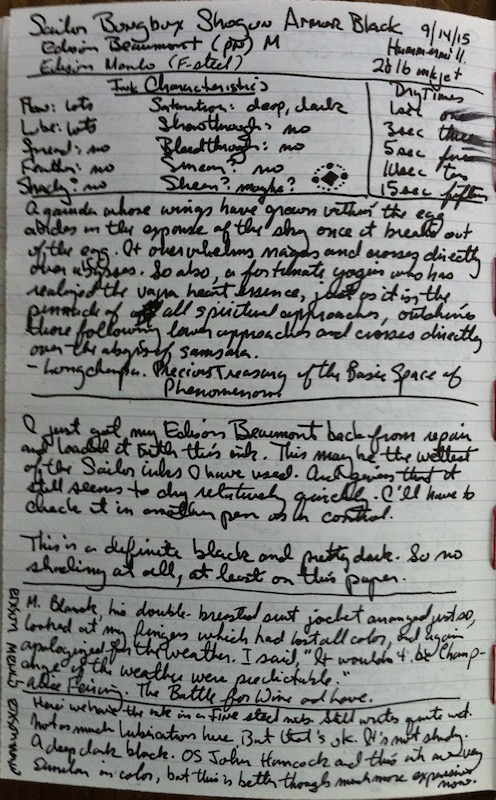 Sailor Bungbox Shogun Armor Black 9/14/15
Edison Beaumont (pn) M Hammermill
Edison Menlo (F-steel) 28 lb inkjet
Ink Characteristics Dry Times
Flow: lots Saturation: deep, dark 1sec one
Lube: lots Showthrough: no 3sec three
Spread: no Bleedthrough: no 5sec five
Feather: no Smear? no 10sec ten
Shading: no Sheen? maybe? 15sec fifteen
A garuda whose wings have grown within the egg
abides in the expanse of the sky once it breaks out
of the egg. It overwhelms nagas and crosses directly
over abysses. So also, a fortunate yogin who has
realized the vajra heart essence, just as it is, the
pinnacle of all spiritual approaches, outshines
those following lower approaches and crosses directly
over the abyss of samsara.
- Longchenpa. Precious Treasury of the Basic Space of
Phenomenon
I just got my Edison Beaumont back from repair
and loaded it with this ink. This may be the wettest
of the Sailor inks I have used. And given that it
still seems to dry relatively quickly. I'll have to
check it in another pen as a control.
This is a definite black and pretty dark. So no
shading at all, at least on this paper.
M. Blanck, his double-breasted suit jacket arranged just so,
looked at my fingers which had lost all color, and again
apologized for the weather. I said, "It wouldn't be Champ-
agne if the weather were predictable."
- Alice Feiring. The Battle for Wine and Love.
Here we have the ink on a fine steel nib. Still writes quite wet.
Not as much lubrication here. But that's ok. It's not study.
A deep dark black. OS John Hancock and this ink are very
similar in color, but this is better though much more expensive
now.
Edison Menlo Edison Menlo